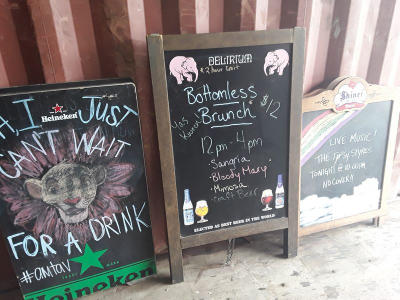 Heineken
I JUST
CAN'T WAIT
FOR A DRINK
Heineken
DELIRIUM
*2 hour limit
Bottomless
Brunch $12
12pm - 4pm
Sangria
Bloody Mary
Mimosa
Craft Beer
ELECTED AS BEST BEER IN THE WORLD
Shiner
LIVE MUSIC!
THE
TONIGHT @
NO COVER!